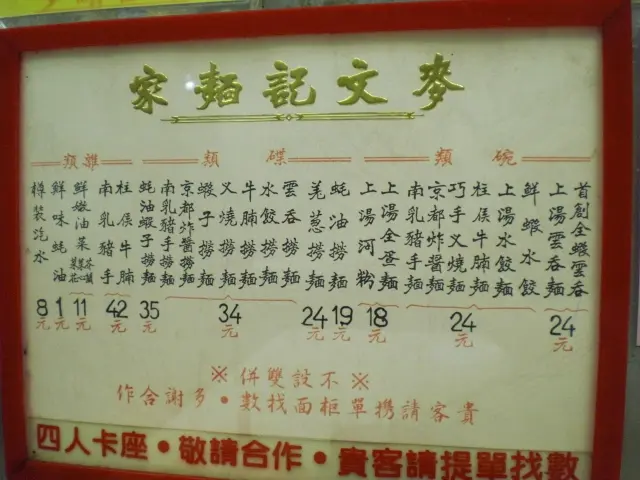 麥文記麵家
碗類
首創全蝦雲吞
上湯雲吞麵
24元
鮮蝦水餃
上湯水餃麵
柱侯牛腩麵
巧手叉燒麵
京都炸醬麵
南乳豬手麵
24元
上湯全蛋麵
上湯河粉
18元
碟類
蚝油撈麵
19元
羗葱撈麵
24元
雲吞撈麵
水餃撈麵
牛腩撈麵
叉燒撈麵
蝦子撈麵
京都炸醬撈麵
南乳豬手撈麵
34元
蚝油蝦子撈麵
35元
雜類
柱侯牛腩
南乳豬手
42元
鮮嫩油菜
11元
鮮味蚝油
1元
樽裝汽水
8元
※不設雙併※
貴客請携單櫃面找數・多謝合作
四人卡座・敬請合作・貴客請提單找數